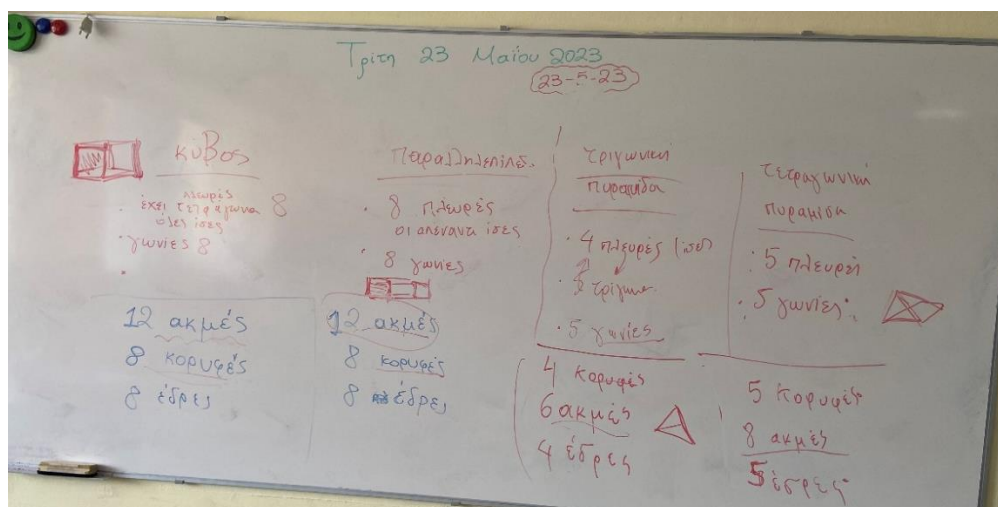 Τρίτη 23 Μαΐου 2023
23-5-23
κύβος
πλευρές
έχει τετράγωνα 8
όλες ίσες
· γωνίες 8
·
12 ακμές
8 κορυφές
8 έδρες
Παραλληλεπίπεδ.
· 8 πλευρές
οι απέναντι ίσες
· 8 γωνίες
12 ακμές
8 κορυφές
8 έδρες
τριγωνική
πυραμίδα
· 4 πλευρές (ισο)
τρίγωνα
· 5 γωνίες
4 κορυφές
6 ακμές
4 έδρες
τετραγωνική
πυραμίδα
· 5 πλευρές
· 5 γωνίες
5 κορυφές
8 ακμές
5 έδρες